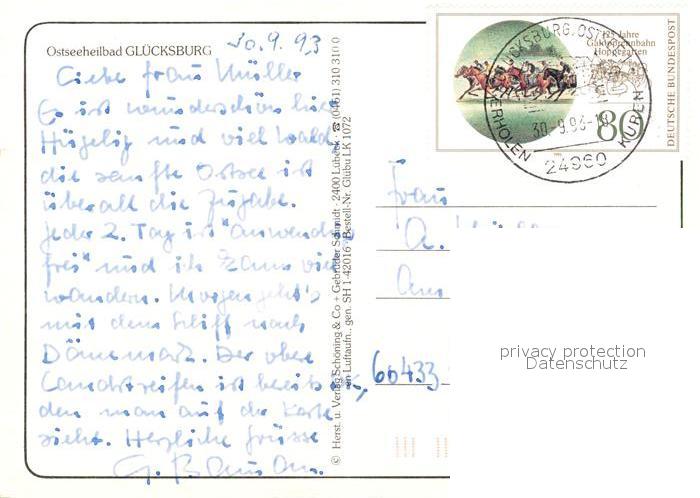 Ostseeheilbad GLÜCKSBURG 30.9.93
Liebe Frau Müller
Es ist wunderschön hier
Hügelig und viel Wald
die sanfte Ostsee ist
überall die Zugabe.
Jeder 2. Tag ist "anwendungs
frei" und ich kann viel
wandern. Morgen geht's
mit dem Schiff nach
Dänemark. Der obere
Landstreifen ist bereits
den man auf der Karte
sieht. Herzliche Grüsse
G.
© Herst. u. Verlag Schöning & Co + Gebrüder Schmidt · 2400 Lübeck ☎ (0451) 310 310 0
Luftaufn. gen. SH 1-42016 · Bestell-Nr. Glübu LK 1072
125 Jahre
Galopprennbahn
Hoppegarten
80
DEUTSCHE BUNDESPOST
30.-9.93-18
24960
KUREN
Frau
A.
Am
60433
privacy protection
Datenschutz